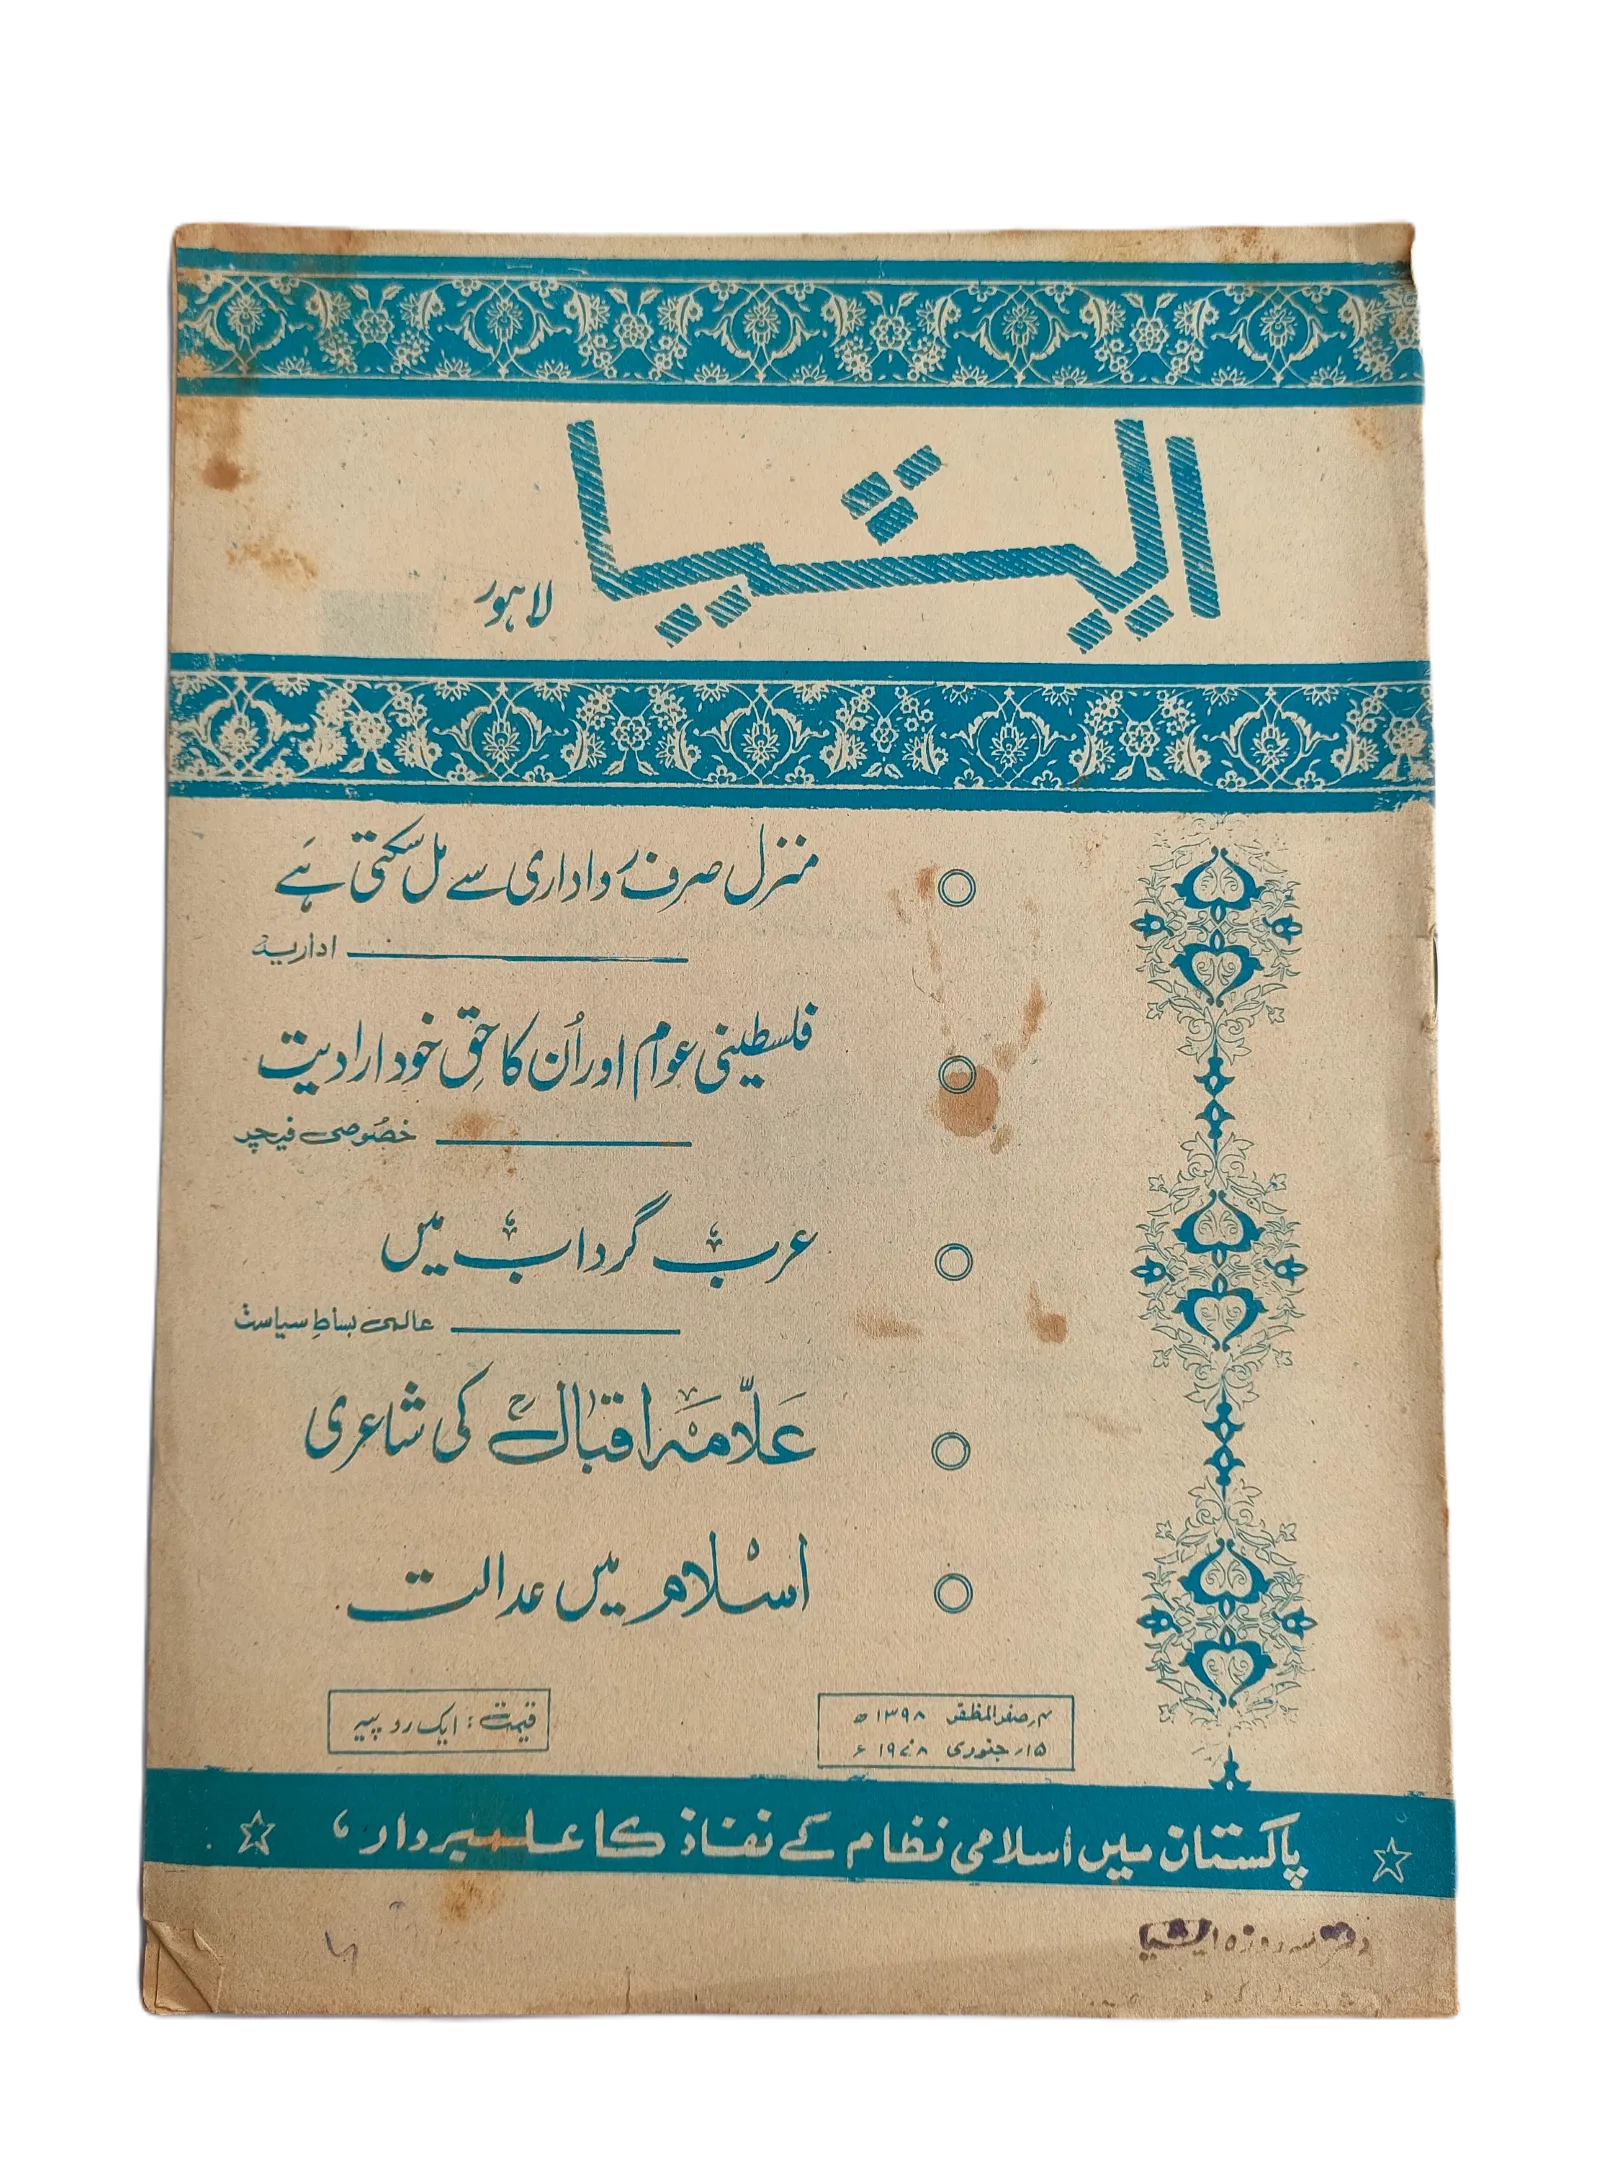 ایشیا
لاہور
منزل صرف رواداری سے مل سکتی ہے
اداریہ
فلسطینی عوام اور اُن کا حقِ خود ارادیت
خصُوصی فیچر
عرب گرداب میں
عالمی بساطِ سیاست
علّامہ اقبالؒ کی شاعری
اسلام میں عدالت
۴؍ صفر المظفر ۱۳۹۸ ھ
۱۵؍ جنوری ۱۹۷۸ ء
قیمت : ایک روپیہ
پاکستان میں اسلامی نظام کے نفاذ کا علمبردار
سہ روزہ ایشیا